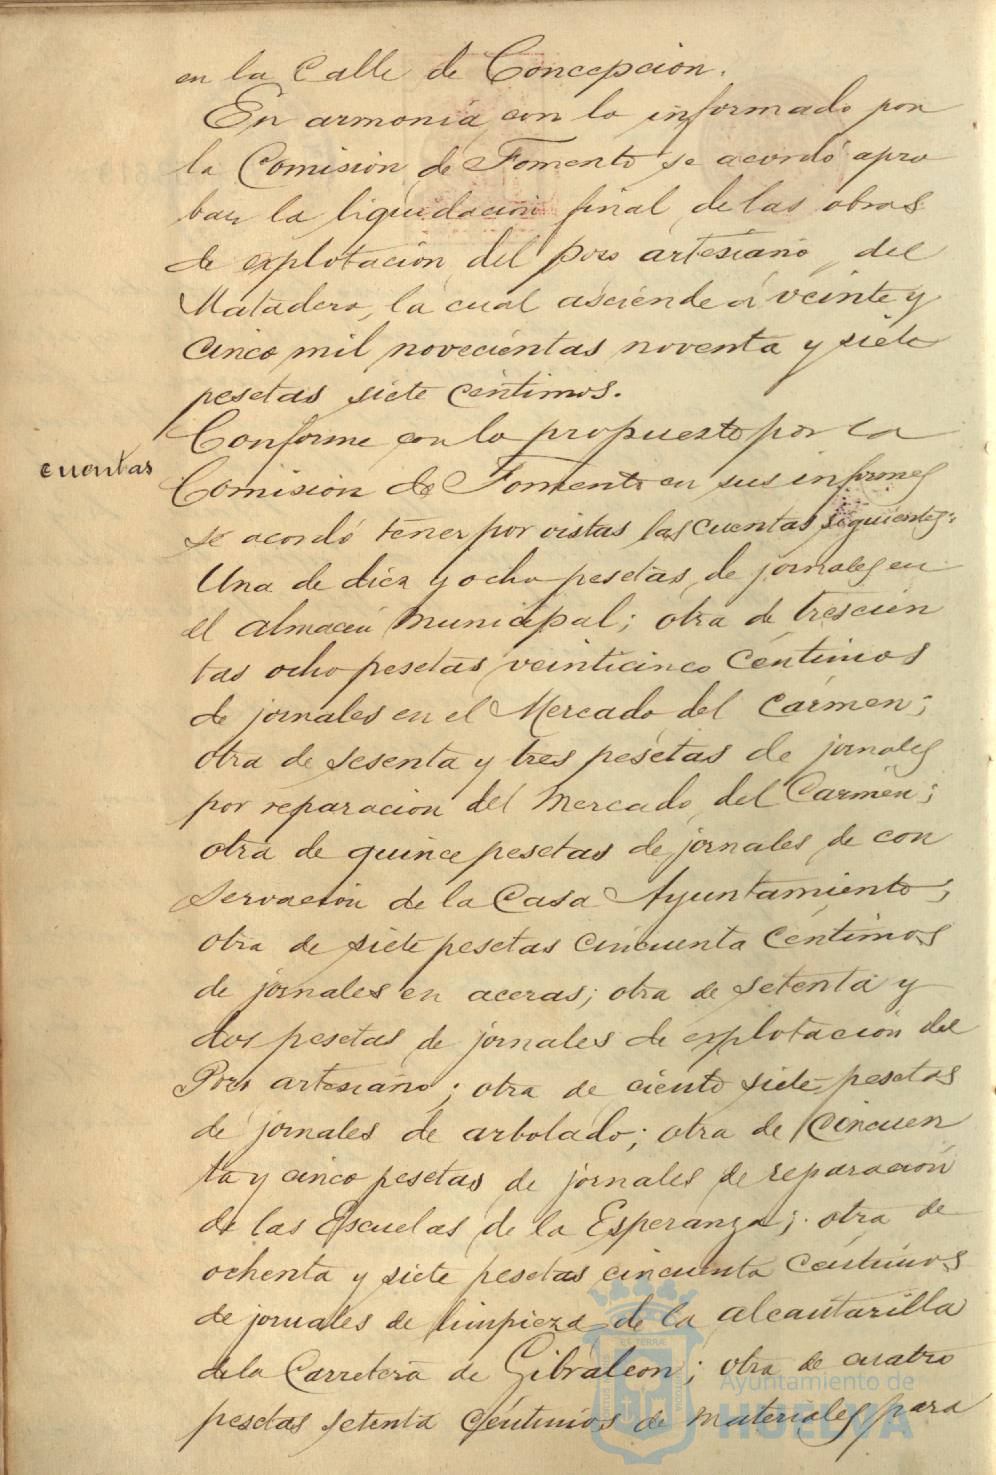 en la Calle de Concepcion.
En armonia con lo informado por
la Comision de Fomento se acordó apro
bar la liquidacion final de las obras
de explotacion del pozo artesiano del
Matadero, la cual asciende á veinte y
cinco mil novecientas noventa y siete
pesetas siete centimos.
cuentas
Conforme con lo propuesto por la
Comision de Fomento en sus informes
se acordó tener por vistas las cuentas siguientes:
Una de diez y ocho pesetas de jornales en
el almacen municipal; otra de trescien
tas ocho pesetas veinticinco centimos
de jornales en el Mercado del Carmen;
otra de sesenta y tres pesetas de jornales
por reparacion del Mercado del Carmen;
otra de quince pesetas de jornales de con
servacion de la Casa Ayuntamiento;
otra de siete pesetas cincuenta centimos
de jornales en aceras; otra de setenta y
dos pesetas de jornales de explotacion del
Pozo artesiano; otra de ciento siete pesetas
de jornales de arbolado; otra de cincuen
ta y cinco pesetas de jornales de reparacion
de las Escuelas de la Esperanza; otra de
ochenta y siete pesetas cincuenta centimos
de jornales de limpieza de la alcantarilla
de la Carretera de Gibraleon; otra de cuatro
pesetas setenta centimos de materiales para
Ayuntamiento de
HUELVA